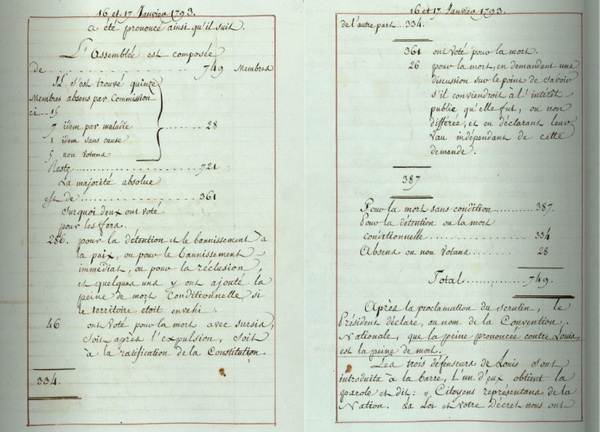 16 et 17 Janvier 1793.
a été prononcé ainsi qu'il suit.
L'Assemblée est composée
de ........ 749 Membres
Il s'est trouvé quinze
Membres absens par Commission
ci... 15
7 idem par maladie ...... 28
1 idem sans cause
5 non votans
Reste ........ 721
La majorité absolue
est de ........ 361
Surquoi deux ont voté
pour les fers.
286. pour la détention et le bannissement à
la paix, ou pour le bannissement
immédiat, ou pour la réclusion,
et quelques uns y ont ajouté la
peine de mort conditionnelle si
le territoire étoit envahi
46 ont voté pour la mort avec sursis,
soit après l'expulsion, soit
à la ratification de la Constitution.
334.
16 et 17 Janvier 1793.
de l'autre part... 334.
361 ont voté pour la mort.
26 pour la mort, en demandant une
discussion sur le point de savoir
s'il conviendroit à l'intérêt
public qu'elle fut, ou non
différée, et en déclarant leur
vœu indépendant de cette
demande.
387
Pour la mort sans condition ........ 387.
Pour la détention ou la mort
conditionnelle ........ 334
Absens ou non votans ........ 28
Total ........ 749.
Après la proclamation du scrutin, le
Président déclare, au nom de la Convention
Nationale, que la peine prononcée contre Louis
est la peine de mort.
Les trois défenseurs de Louis sont
introduits à la barre, l'un d'eux obtient la
parole et dit: " Citoyens représentans de la
Nation. La Loi et votre Décret nous ont